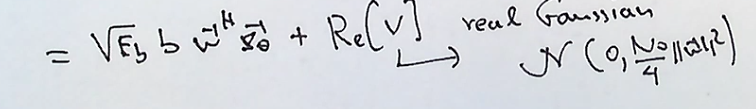 = √Eb b w⃗ᴴ s⃗₀ + Re[V] real Gaussian
↳ N(0, No/4 ||w||²)